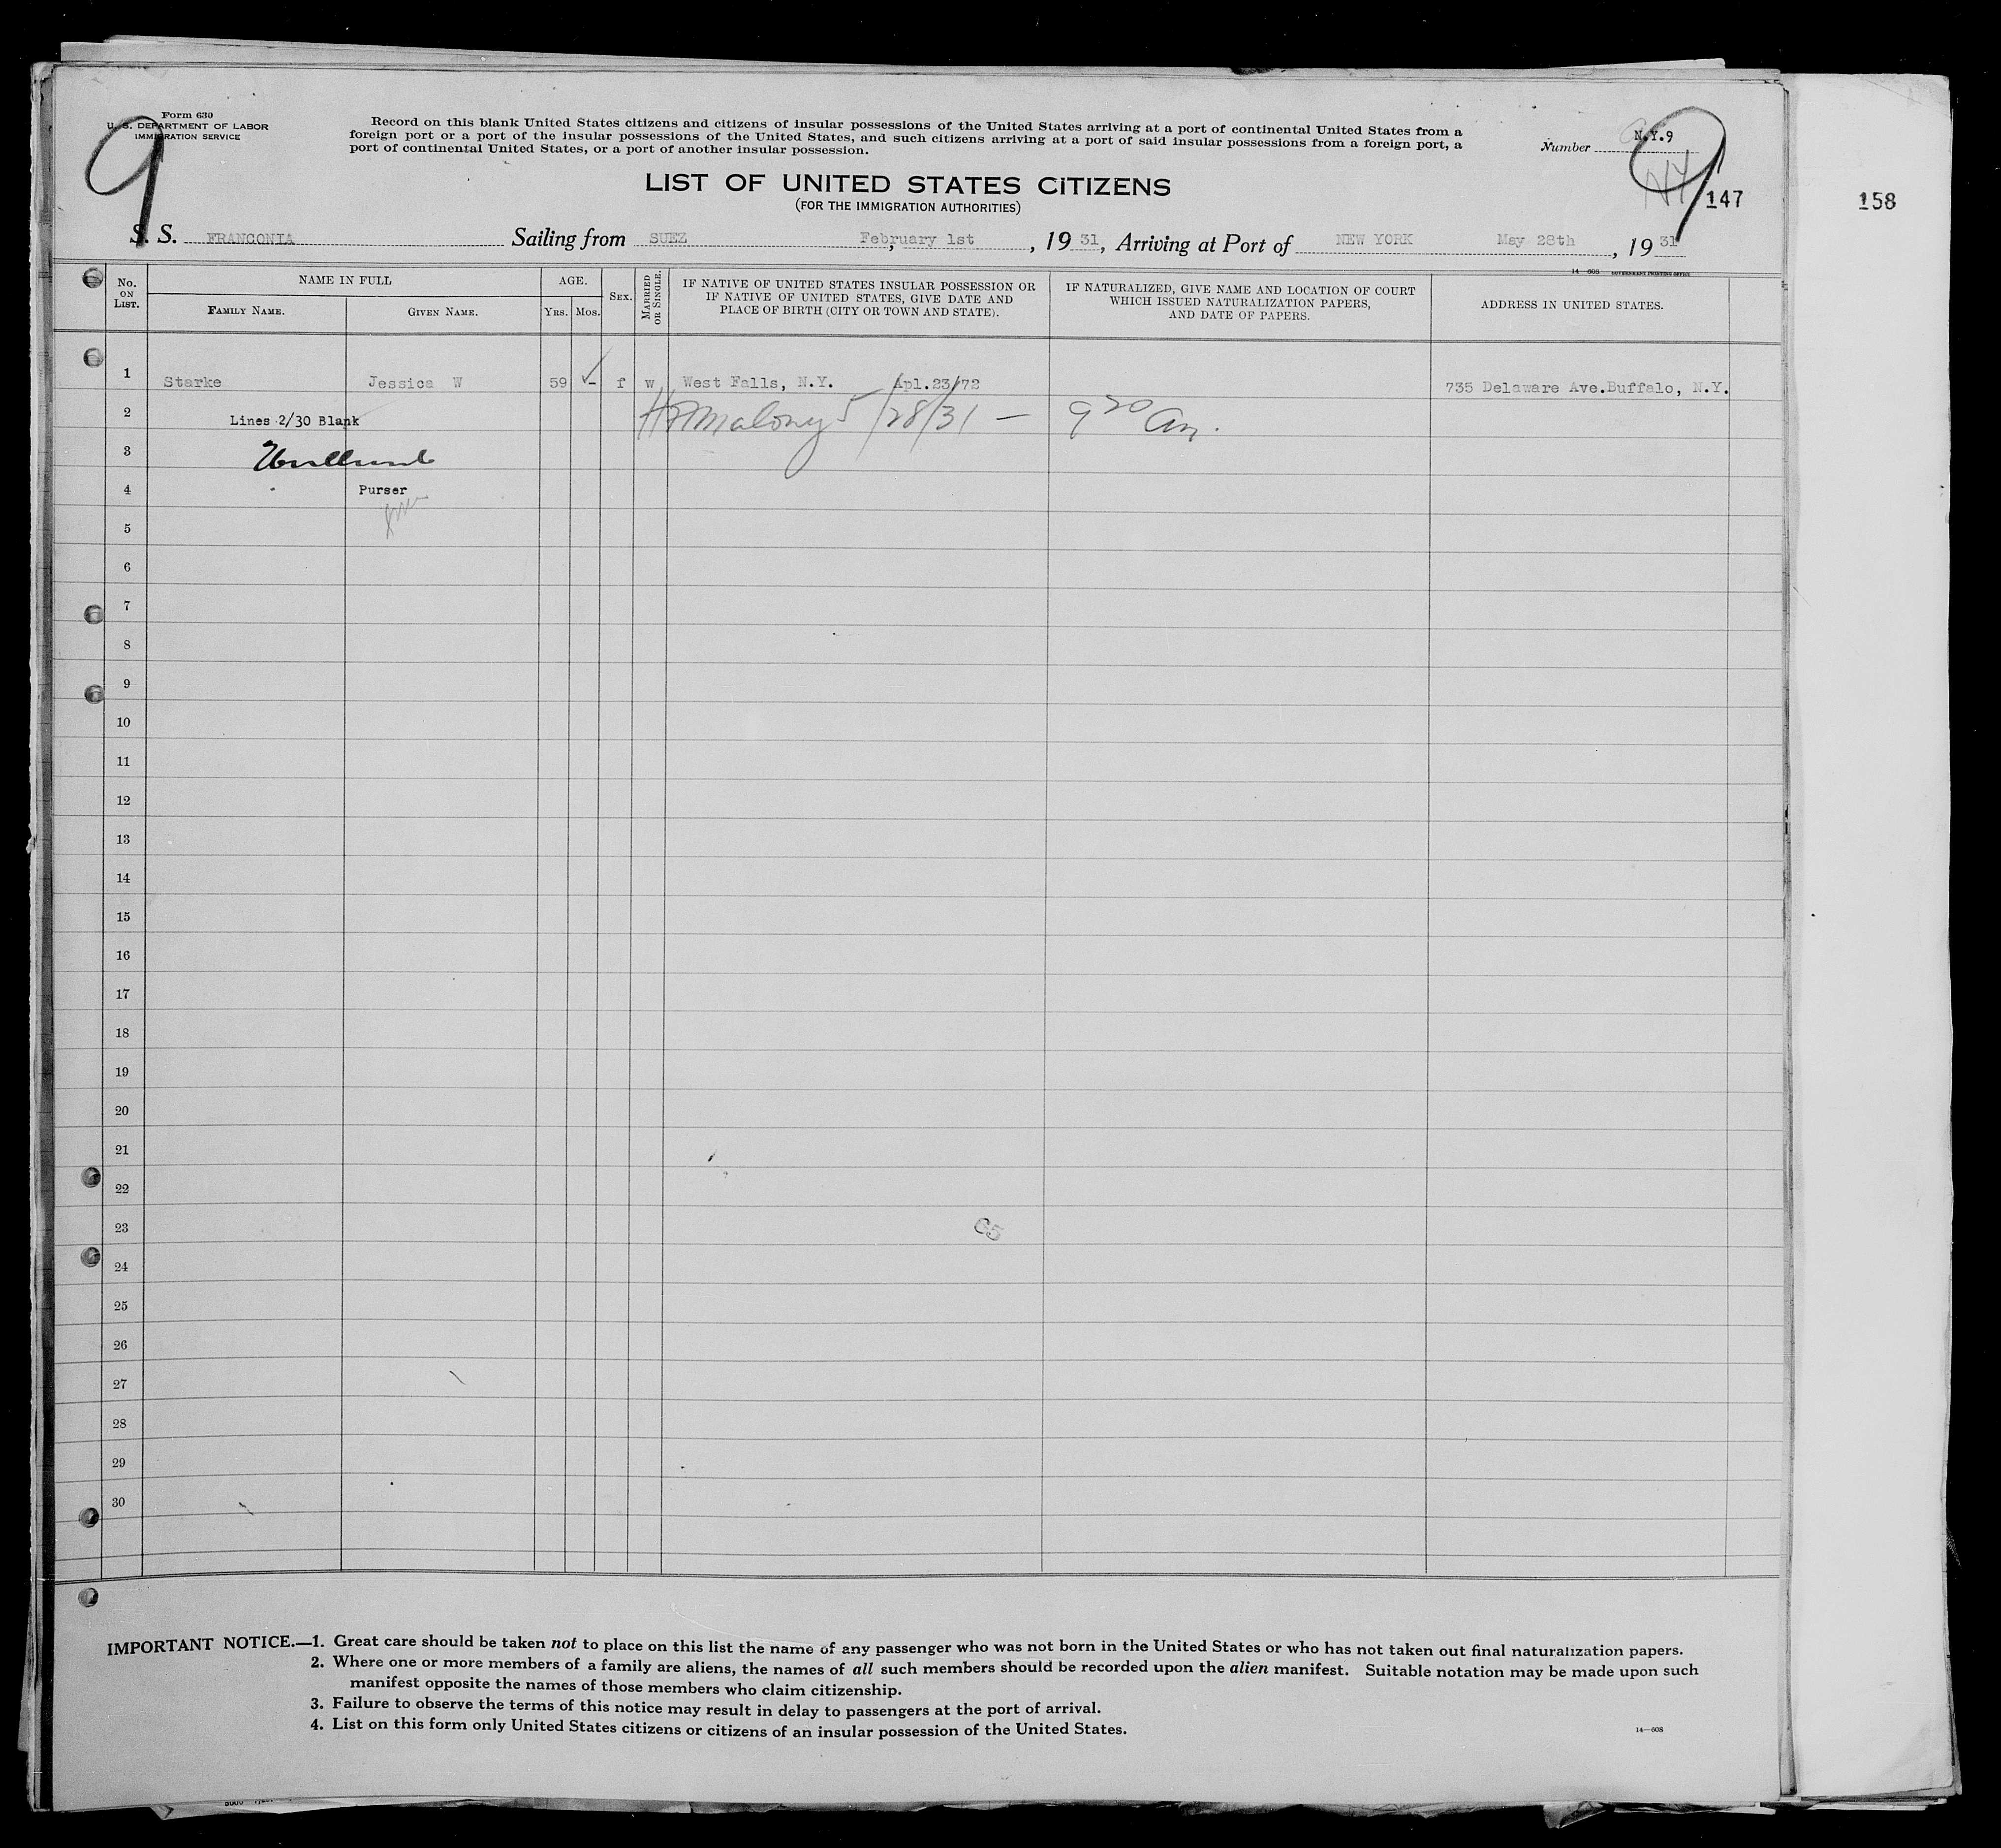 Form 630
U. S. DEPARTMENT OF LABOR
IMMIGRATION SERVICE
9
Record on this blank United States citizens and citizens of insular possessions of the United States arriving at a port of continental United States from a
foreign port or a port of the insular possessions of the United States, and such citizens arriving at a port of said insular possessions from a foreign port, a
port of continental United States, or a port of another insular possession.
Number N.Y.9
9
NY
147
158
LIST OF UNITED STATES CITIZENS
(FOR THE IMMIGRATION AUTHORITIES)
S. S. FRANCONIA Sailing from SUEZ, February 1st, 19 31, Arriving at Port of NEW YORK May 28th, 19 31
14—608 GOVERNMENT PRINTING OFFICE
No. ON LIST. NAME IN FULL AGE. SEX. MARRIED OR SINGLE. IF NATIVE OF UNITED STATES INSULAR POSSESSION OR IF NATIVE OF UNITED STATES, GIVE DATE AND PLACE OF BIRTH (CITY OR TOWN AND STATE). IF NATURALIZED, GIVE NAME AND LOCATION OF COURT WHICH ISSUED NATURALIZATION PAPERS, AND DATE OF PAPERS. ADDRESS IN UNITED STATES.
FAMILY NAME. GIVEN NAME. YRS. MOS.
1 Starke Jessica W 59 - f w West Falls, N.Y. Apl.23/72 735 Delaware Ave.Buffalo, N.Y.
2 Lines 2/30 Blank Maloney 5/28/31 — 9 20 am.
3
4 Purser
5
6
7
8
9
10
11
12
13
14
15
16
17
18
19
20
21
22
23
24
25
26
27
28
29
30
IMPORTANT NOTICE.—1. Great care should be taken not to place on this list the name of any passenger who was not born in the United States or who has not taken out final naturalization papers.
2. Where one or more members of a family are aliens, the names of all such members should be recorded upon the alien manifest. Suitable notation may be made upon such
manifest opposite the names of those members who claim citizenship.
3. Failure to observe the terms of this notice may result in delay to passengers at the port of arrival.
4. List on this form only United States citizens or citizens of an insular possession of the United States.
14—608